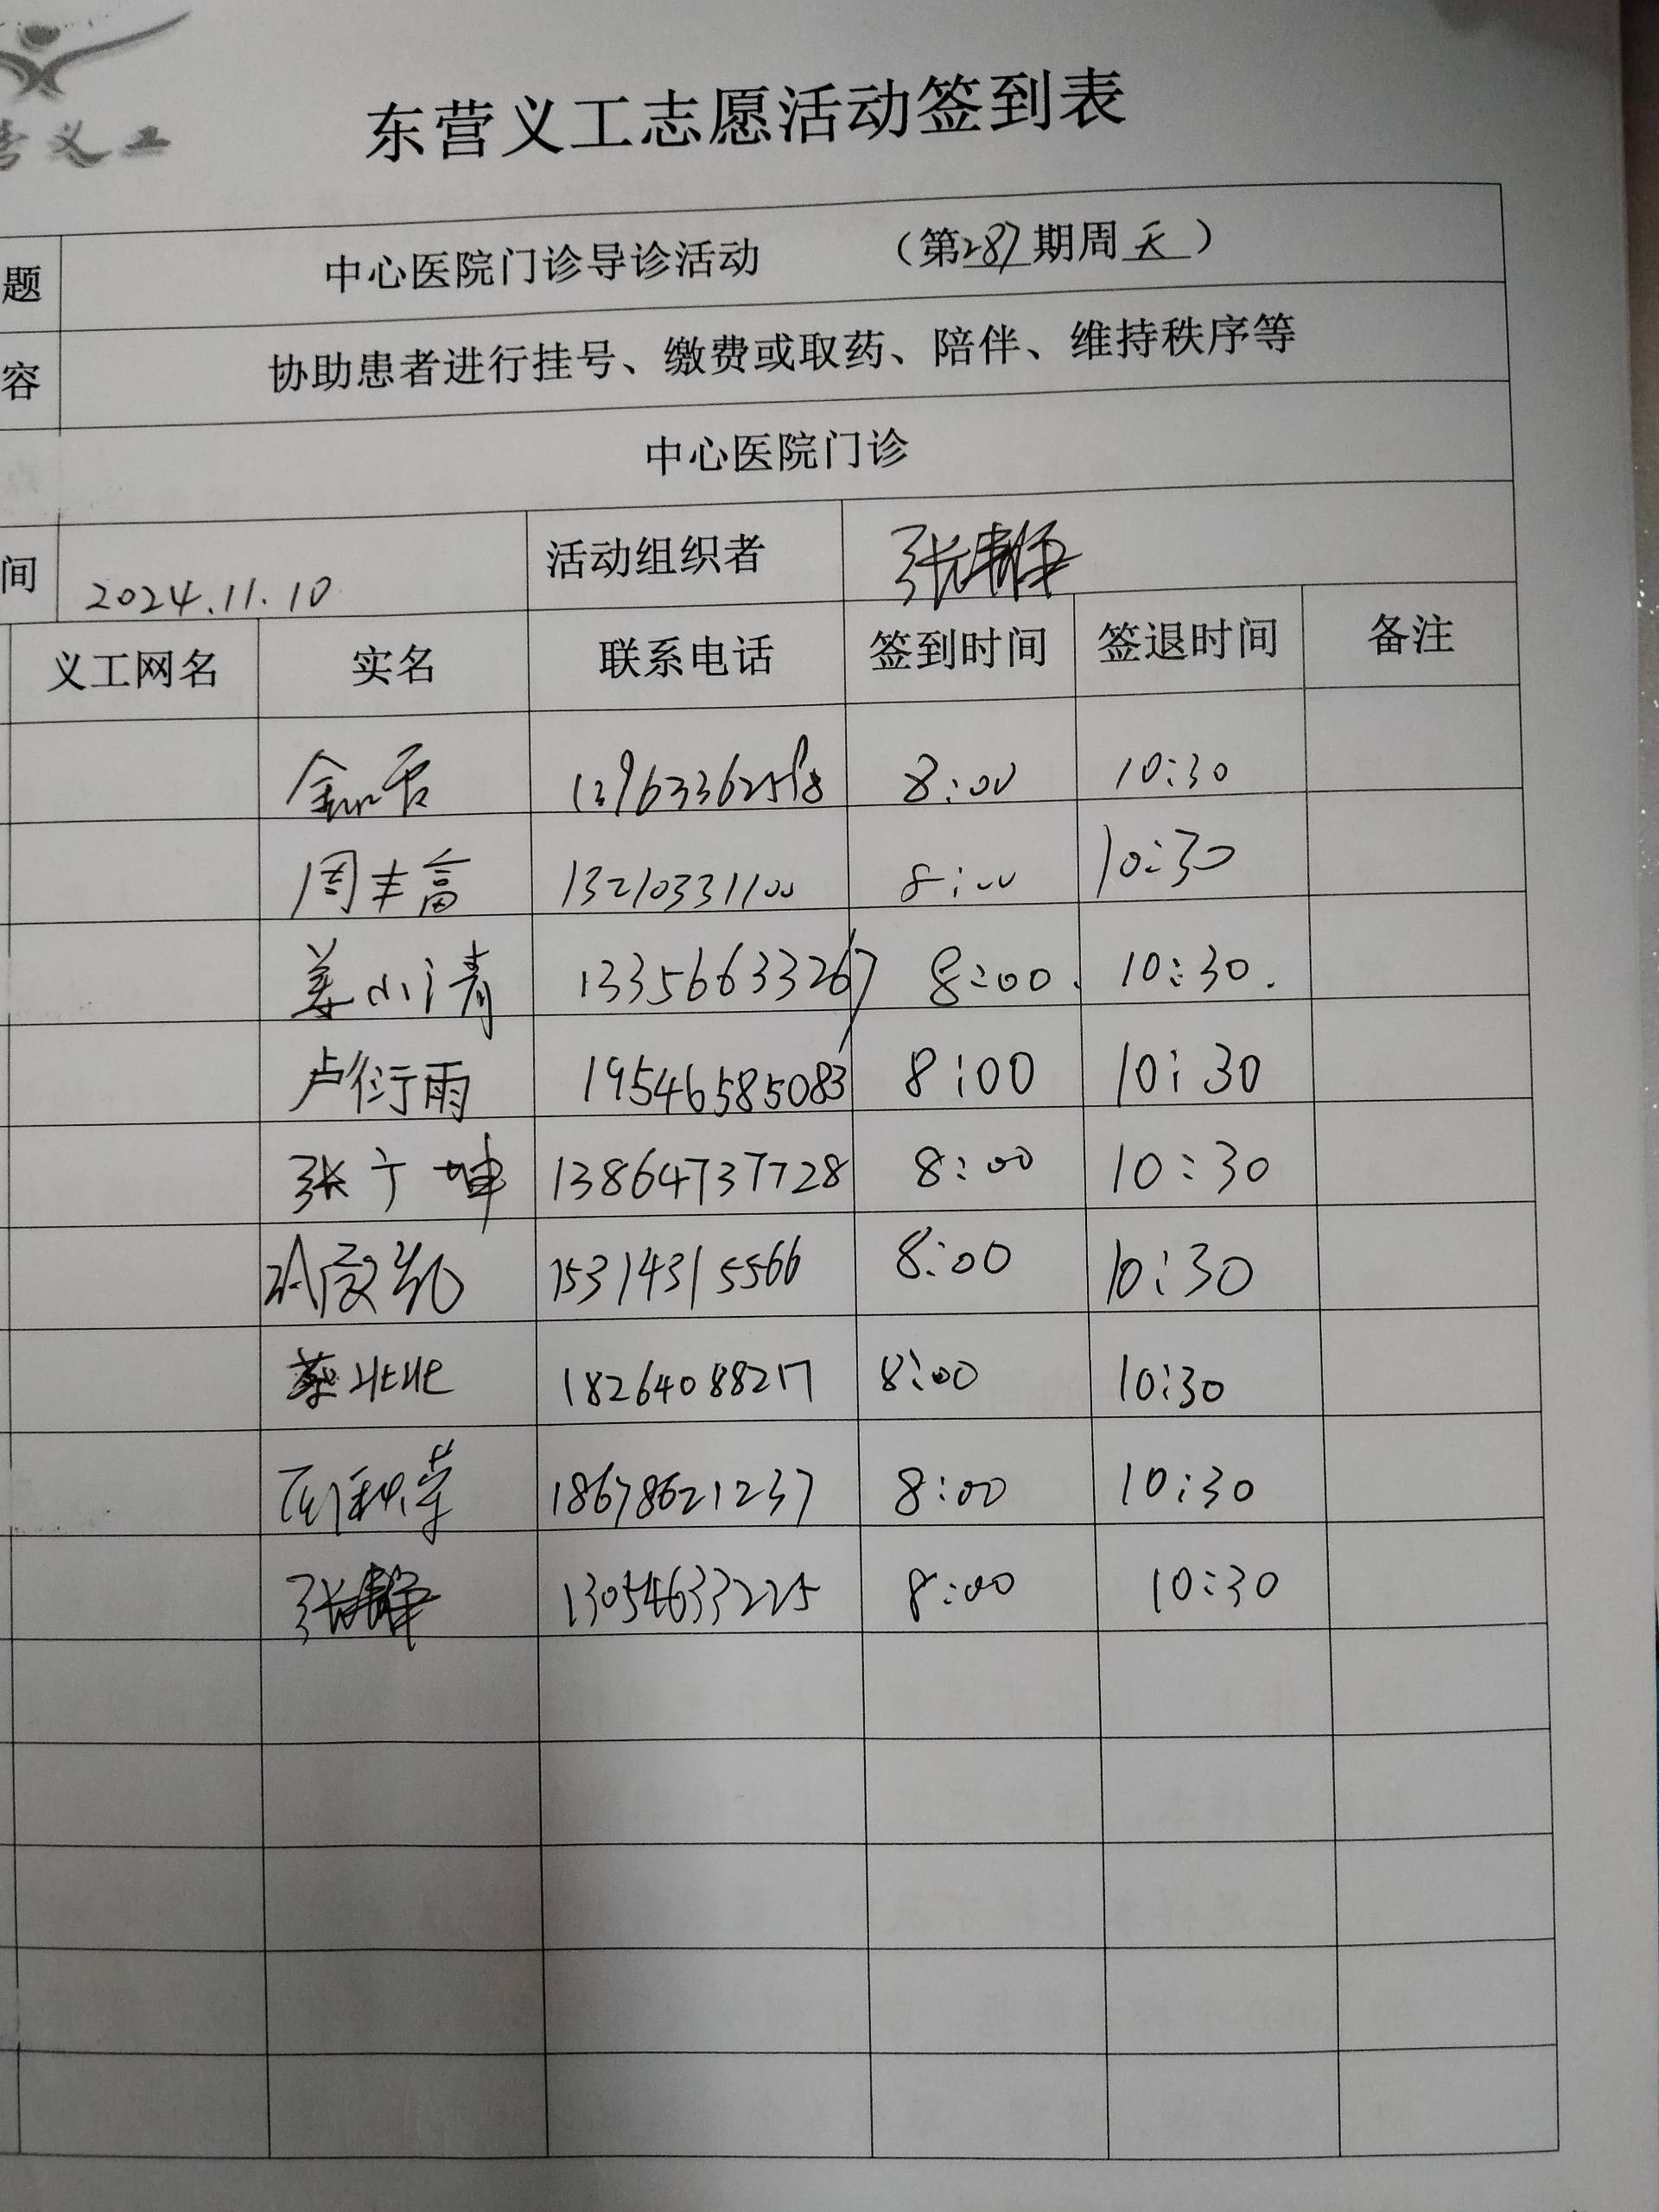 营义工
东营义工志愿活动签到表
题 中心医院门诊导诊活动 （第287期周天）
容 协助患者进行挂号、缴费或取药、陪伴、维持秩序等
中心医院门诊
间 2024.11.10 活动组织者 张静
义工网名 实名 联系电话 签到时间 签退时间 备注
8:00 10:30
周丰富 13210331100 8:00 10:30
姜小清 13356633267 8:00. 10:30.
卢衍雨 19546585083 8:00 10:30
张广坤 13864737728 8:00 10:30
15314315566 8:00 10:30
蔡北北 18264088217 8:00 10:30
18678621237 8:00 10:30
张静 13054633225 8:00 10:30